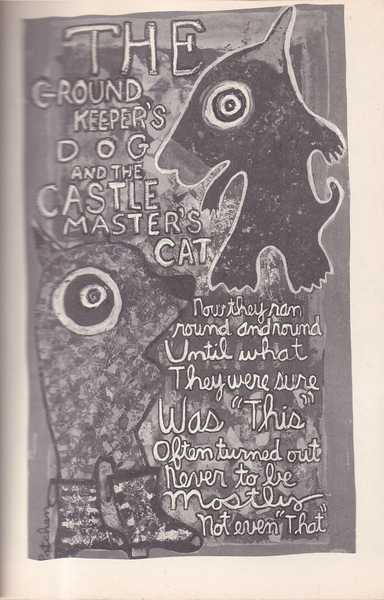 THE
GROUND
KEEPER'S
DOG
AND THE
CASTLE
MASTER'S
CAT
Now they ran
round and round
Until what
They were sure
Was "This"
Often turned out
Never to be
Mostly
Not even "That"
Patchen